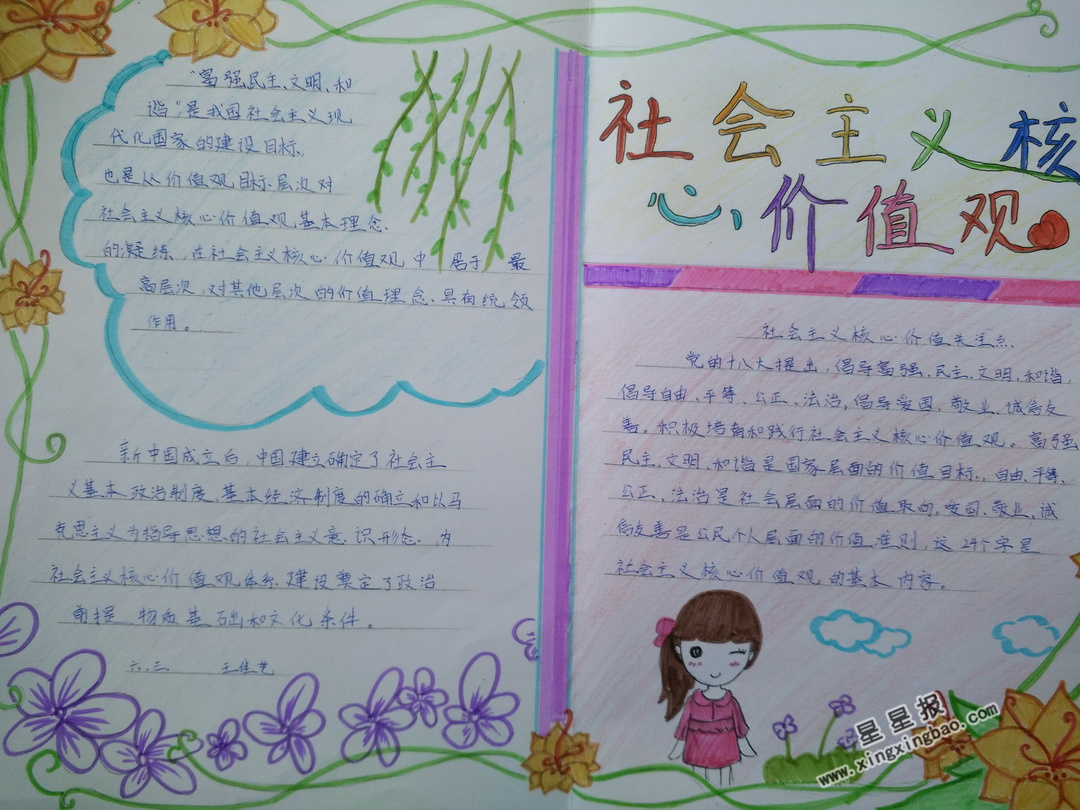 "富强民主、文明、和
谐"是我国社会主义现
代化国家的建设目标、
也是从价值观目标层次对
社会主义核心价值观基本理念
的凝练、在社会主义核心价值观中居于最
高层次、对其他层次的价值理念、具有统领
作用。
新中国成立后、中国建立确定了社会主
义基本政治制度、基本经济制度的确立和以马
克思主义为指导思想的社会主义意识形态、为
社会主义核心价值观体系建设奠定了政治
前提、物质基础和文化条件。
六.三 王佳艺
社会主义核
心价值观
社会主义核心价值关注点、
党的十八大提出、倡导富强、民主、文明、和谐,
倡导自由、平等、公正、法治,倡导爱国、敬业、诚信友
善。积极培育和践行社会主义核心价值观。富强
民主、文明、和谐是国家层面的价值目标、自由、平等、
公正、法治是社会层面的价值取向,爱国、敬业、诚
信友善是公民个人层面的价值准则,这24个字是
社会主义核心价值观的基本内容。
星星报
www.xingxingbao.com